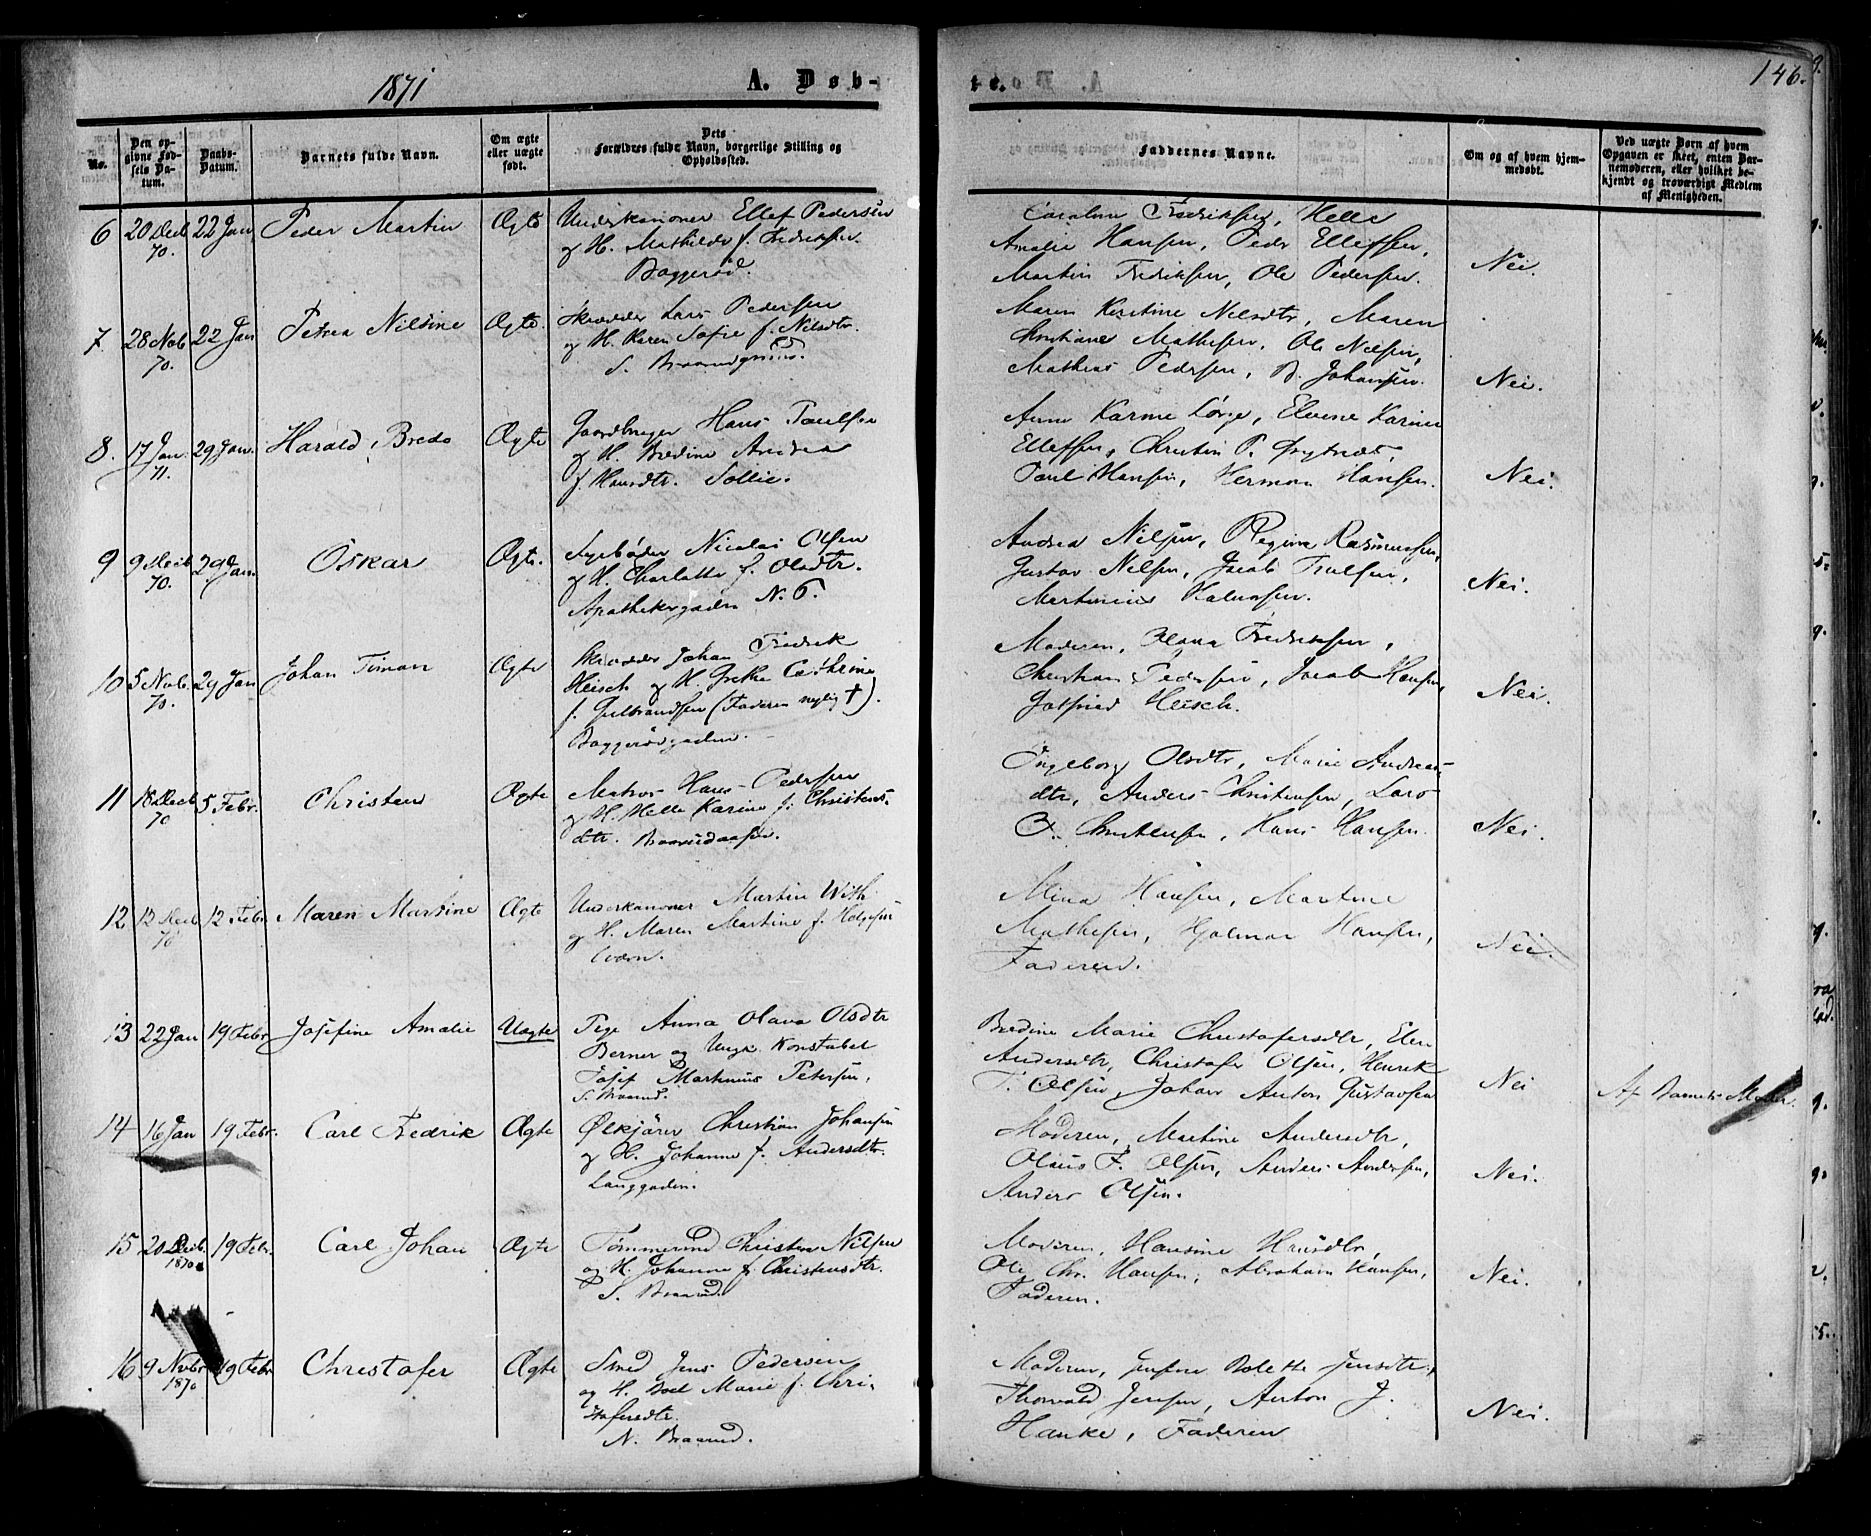 1871
A. Døb-
te.
146.
No.
Den op-
givne Fød-
sels Da-
tum.
Daabs-
Datum.
Barnets fulde Navn.
Om ægte
eller uægte
født.
Dets
Forældres fulde Navn, borgerlige Stilling og
Opholdssted.
Faddernes Navne.
Om og af hvem hjem-
medøbt.
Ved uægte Børn af hvem
Opgaven er skeet, enten Bar-
nemoderen, eller hvilket be-
kjendt og troværdigt Medlem
af Menigheden.
6 20 Decb 70. 22 Jan Peder Martin Ægte
Underkanoner Ellef Pedersen
og H. Mathilde f. Fredriksen.
Baggerød.
Caroline Fredriksen, Helle
Amalie Hansen, Peder Ellefsen,
Martin Fredriksen, Ole Pedersen.
Nei.
7 28 Novb 70. 22 Jan Petrea Nilsine Ægte.
Skrædder Lars Pedersen
og H. Karen Sofie f. Nilsdtr.
S. Braarudgrund.
Maren Kirstine Nilsdtr, Maren
Christiane Mathesen, Ole Nilsen,
Mathias Pedersen, B. Johansen.
Nei.
8. 17 Jan. 71. 29 Jan. Harald Bredo Ægte
Gaardbruger Hans Paulsen
og H. Bredine Andrea
f. Hansdtr. Sollie.
Anne Karine Lørge, Elvine Karine
Ellefsen, Christin P.
Paul Hansen, Herman Hansen.
Nei.
9 9 Decb 70. 29 Jan. Oskar Ægte.
Fyrbøder Nicolai Olsen
og H. Charlotte f. Olsdtr.
Apothekergaden N. 6.
Andrea Nilsen, Regine Rasmussen,
Gustav Nilsen, Jacob Truelsen,
Martinius Halvorsen.
Nei.
10 5 Novb. 70. 29 Jan Johan Timan Ægte
Skrædder Johan Fredrik
Heisch og H. Grethe Cathrine
f. Gulbrandsen (Faderen nylig †).
Baggerødgaden.
Moderen, Olava Fredriksen,
Christian Pedersen, Jacob Hansen,
Gotfried Heisch.
Nei.
11 18 Decb 70 5 Febr. Christen Ægte
Matros Hans Pedersen
og H. Helle Karine f. Christens-
dtr. Braarudaasen.
Ingeborg Olsdtr, Marie Andreas-
dtr, Anders Christensen, Lars
Christensen, Hans Hansen.
Nei.
12 13 Decb 70 12 Febr Maren Martine Ægte
Underkanoner Martin With
og H. Maren Martine f. Helgesen
Værn.
Mina Hansen, Martine
Mathesen, Hjalmar Hansen,
Faderen.
Nei.
13 22 Jan 19 Febr Josefine Amalie Uægte
Pige Anna Olava Olsdtr
Berner og Ungk. Konstabel
Josef Martinius Petersen,
S. Braarud.
Bredine Marie Christofersdtr, Elen
Andersdtr, Christofer Olsen, Henrik
T. Olsen, Johan Anton Gustavsen
Nei
Af Barnets Moder.
14 16 Jan 19 Febr. Carl Fredrik Ægte
Ølkjører Christian Johansen
og H. Johanne f. Andersdtr.
Langgaden.
Moderen, Martine Andersdtr,
Olaus F. Olsen, Anders Andersen,
Anders Olsen.
Nei.
15 20 Decb. 1870. 19 Febr. Carl Johan Ægte
Tømmermd Christen Nilsen
og H. Johanne f. Christensdtr.
S. Braarud.
Moderen, Hansine Hansdtr,
Ole Chr. Hansen, Abraham Hansen,
Faderen.
Nei.
16 9 Novbr 1870 19 Febr Christofer Ægte
Smed Jens Pedersen
og H. Boel Marie f. Chri-
stofersdtr.
N. Braarud.
Moderen, Josefine Bolette Jensdtr,
Thorvald Jensen, Anton J.
Hanke, Faderen
Nei.